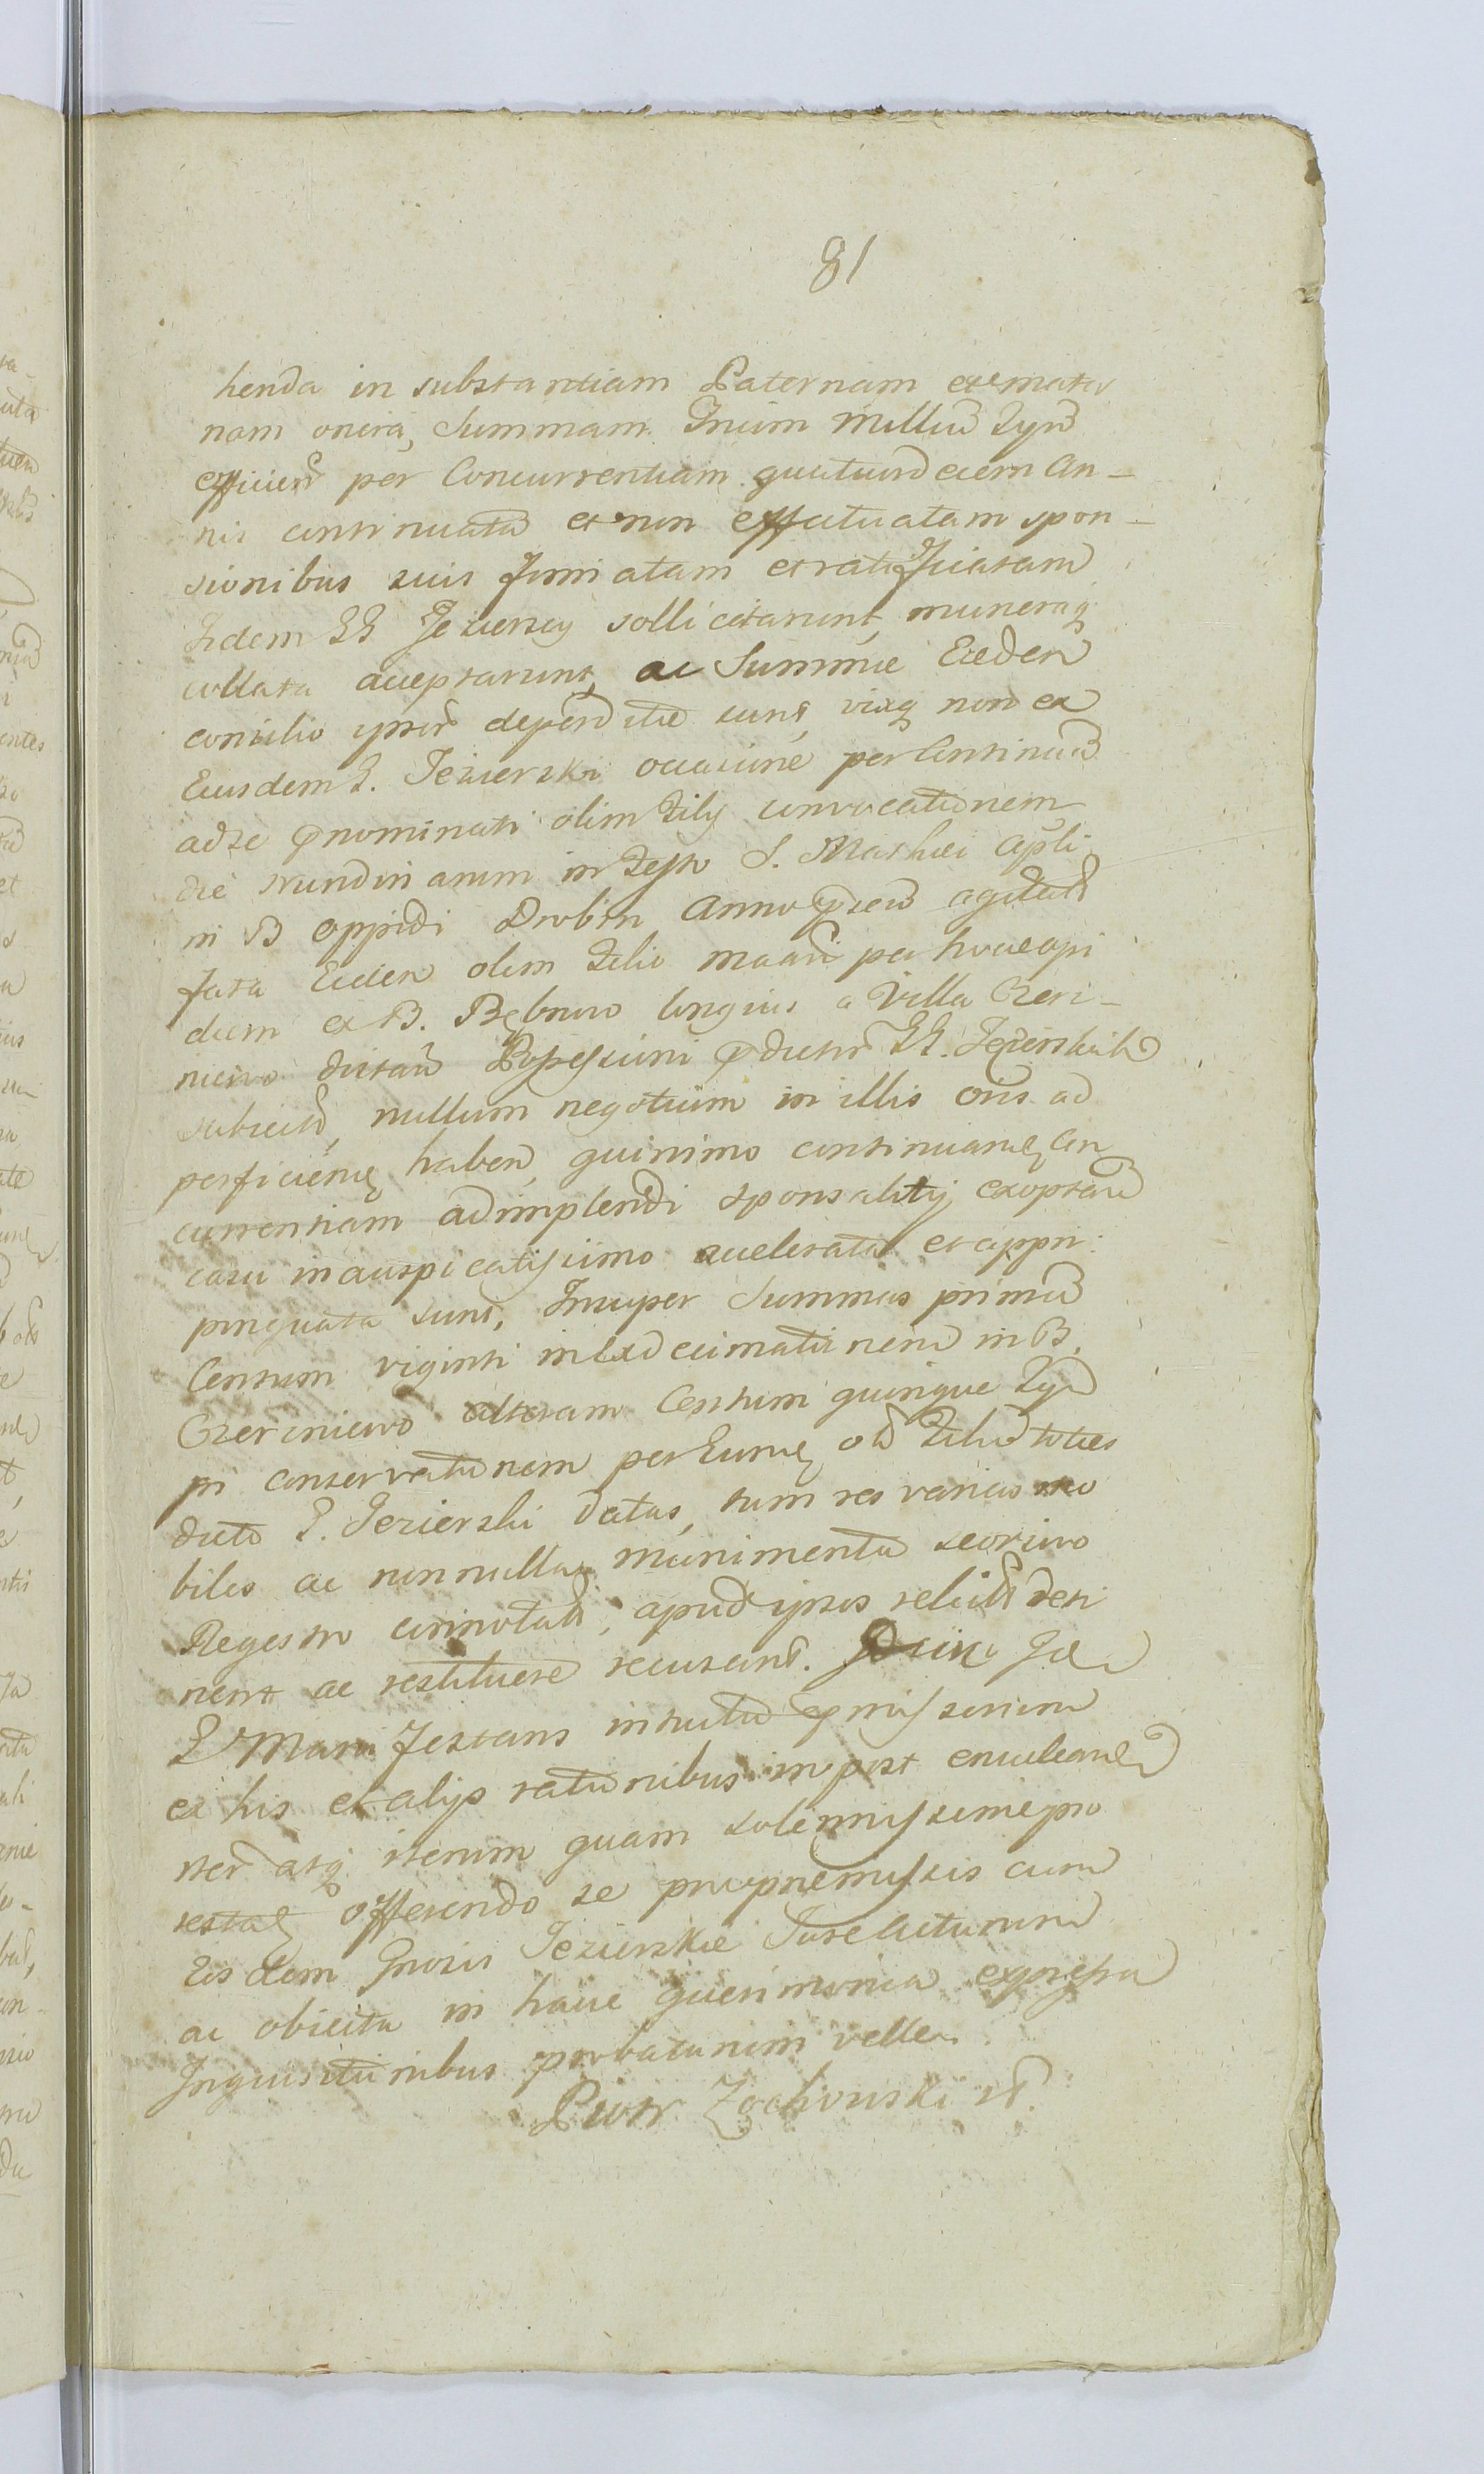 81
henda in substantiam Paternam et mater
nam onera, Summam Trium Milliu
efficien per Concurrentiam quatuordecem An-
nis continuata et non effectuatam spon-
sionibus suis firmatam et ratificatam
Iidem Jeziersky sollicitarunt, muneraq
collata acceptarunt, ac Summae Eaedem
consilio ipsor deperditae sunt, viaq non ex
Eiusdem Jezierski occasione per Continua
ad se nominati olim Filij convocationem
die Nundinarum in Festo S. Mathei Apli
in B oppidi Drobin Anno agitat
fata Eidem olim Filio per hocce opi
dum ex B. longius a Villa Czeri-
niewo dictam Possessioni
subiecto, nullum negotium in illis oris ad
perficiend haben, quinimo continuand con
currentiam adimplendi Sponsalitij exoptan
casu inauspicatissimo accelerata et appro
pinquata sunt, Insuper Summas prima
Centum viginti in B.
Czeriniewo alteram Centum quinque
pri conservationem per Eund olim Filiu toties
dicto P. Jezierski datas, tum res varias mo
biles ac nonnulla munimenta seorsivo
Regestro connotat, apud ipsos relicta deti
nent ac restituere recusant. Idem
P Manifestans intuitu praemissorum
ex his et alijs rationibus in post enucleand
iter atq iterum quam solennissime pro
testat offerendo se pro praemissis cum
Eisdem Gnosis Jezierskie Jure acturum
ac obiecta in hacce querimonia expressa
Inquisitionibus probaturum velle.
Piotr Zochowski